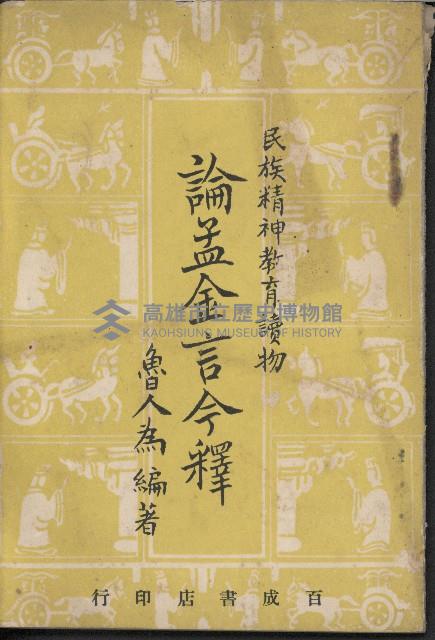 民族精神教育讀物
論孟金言今釋
魯人為編著
百成書店印行
高雄市立歷史博物館
KAOHSIUNG MUSEUM OF HISTORY